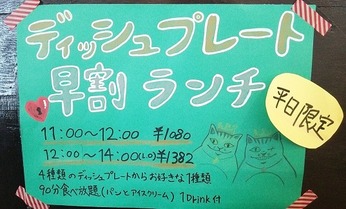 ディッシュプレート
早割 ランチ
平日限定
11:00〜12:00 ¥1080
12:00〜14:00(LO) ¥1382
4種類のディッシュプレートからお好きな1種類
90分食べ放題(パンとアイスクリーム) 1Drink付